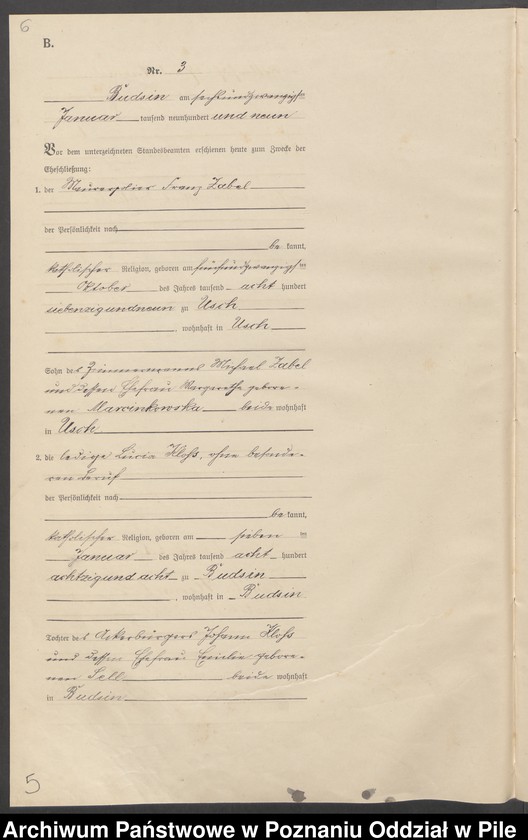 6
B.
Nr. 3
Budsin am sechsundzwanzigsten
Januar tausend neunhundert und neun
Vor dem unterzeichneten Standesbeamten erschienen heute zum Zwecke der
Eheschließung:
1. der Franz Zabel
der Persönlichkeit nach
be kannt,
katholischer Religion, geboren am fünfundzwanzigsten
Oktober des Jahres tausend acht hundert
siebenzigundneun zu Usch
, wohnhaft in Usch
Sohn des Zimmermanns Michael Zabel
und dessen Ehefrau Margarethe gebore-
nen Marcinkowska beide wohnhaft
in Usch
2. die ledige Lucia Kloß, ohne besonde-
ren Beruf
der Persönlichkeit nach
be kannt,
katholischer Religion, geboren am sieben ten
Januar des Jahres tausend acht hundert
achtzigundacht zu Budsin
, wohnhaft in Budsin
Tochter des Ackerbürgers Johann Kloß
und dessen Ehefrau Emilie gebore-
nen Sell beide wohnhaft
in Budsin
5
Archiwum Państwowe w Poznaniu Oddział w Pile